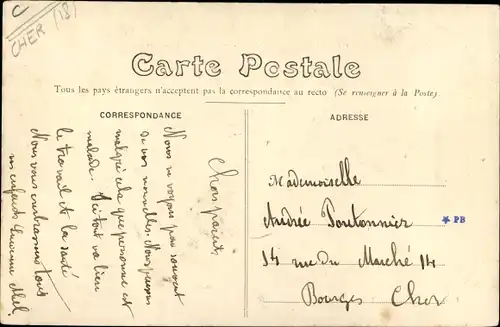 C
CHER (18)
Carte Postale
Tous les pays étrangers n'acceptent pas la correspondance au recto (Se renseigner à la Poste)
CORRESPONDANCE
Chers parents,
Nous ne voyons pas souvent
de vos nouvelles. Nous pensons
malgré cela que personne est
malade. Ici tout va bien
le travail et la santé
Nous vous embrassons tous
vos enfants
ADRESSE
Mademoiselle
Andrée Pontonnier
14 rue Du Marché 14
Bourges Cher
* PB